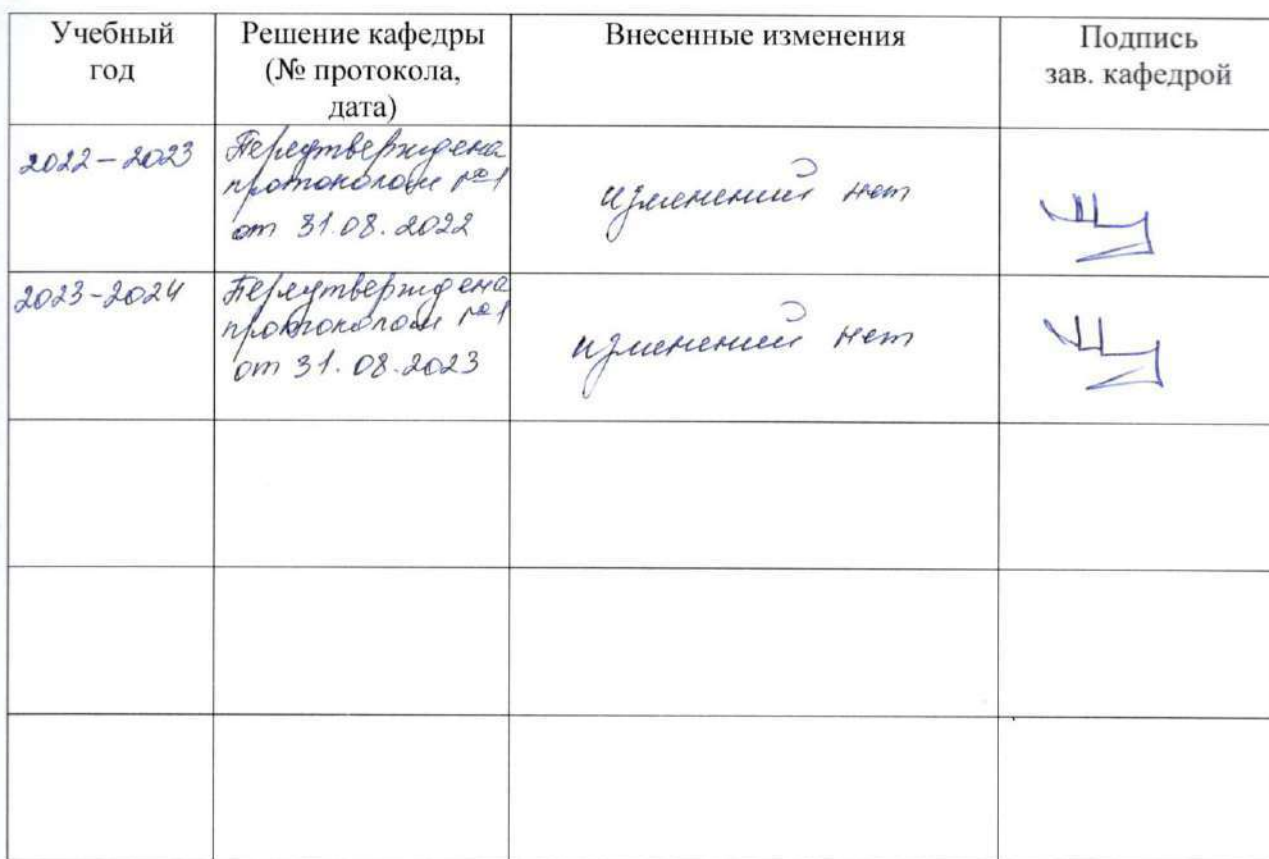 Учебный
год
Решение кафедры
(№ протокола,
дата)
Внесенные изменения
Подпись
зав. кафедрой
2022-2023
Переутверждена
протоколом №1
от 31.08.2022
изменений нет
2023-2024
Переутверждена
протоколом №1
от 31.08.2023
изменений нет